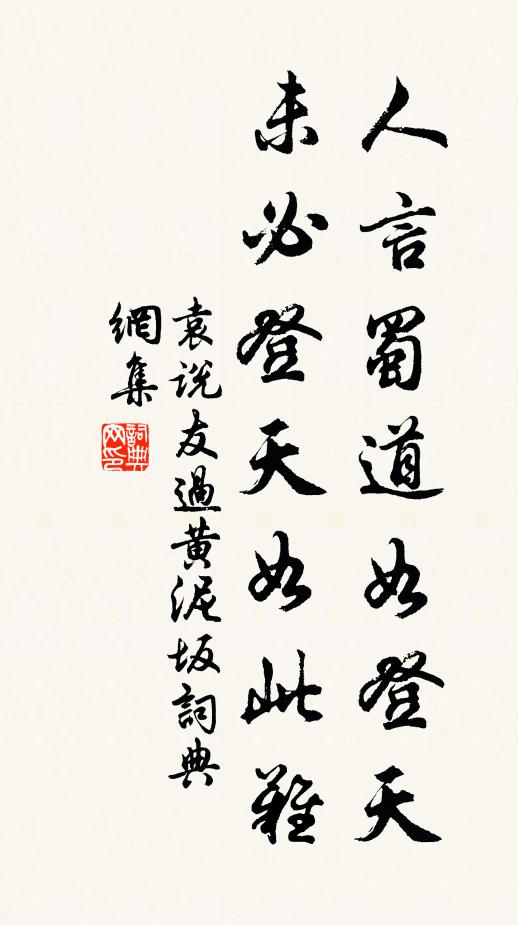 人言蜀道如登天
未必登天如此難
袁說友過黃泥坂詞典
網集
詞典
网印